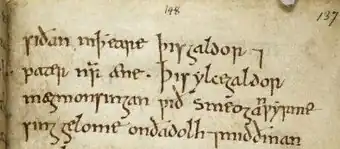 148
137
sidan in heare þis galdor ⁊
pater nr̄ æne · þis ylce galdor
mæg mon singan ƿið smeogan ƿyrme
sing gelome on ða dolh ⁊ mid ðinan